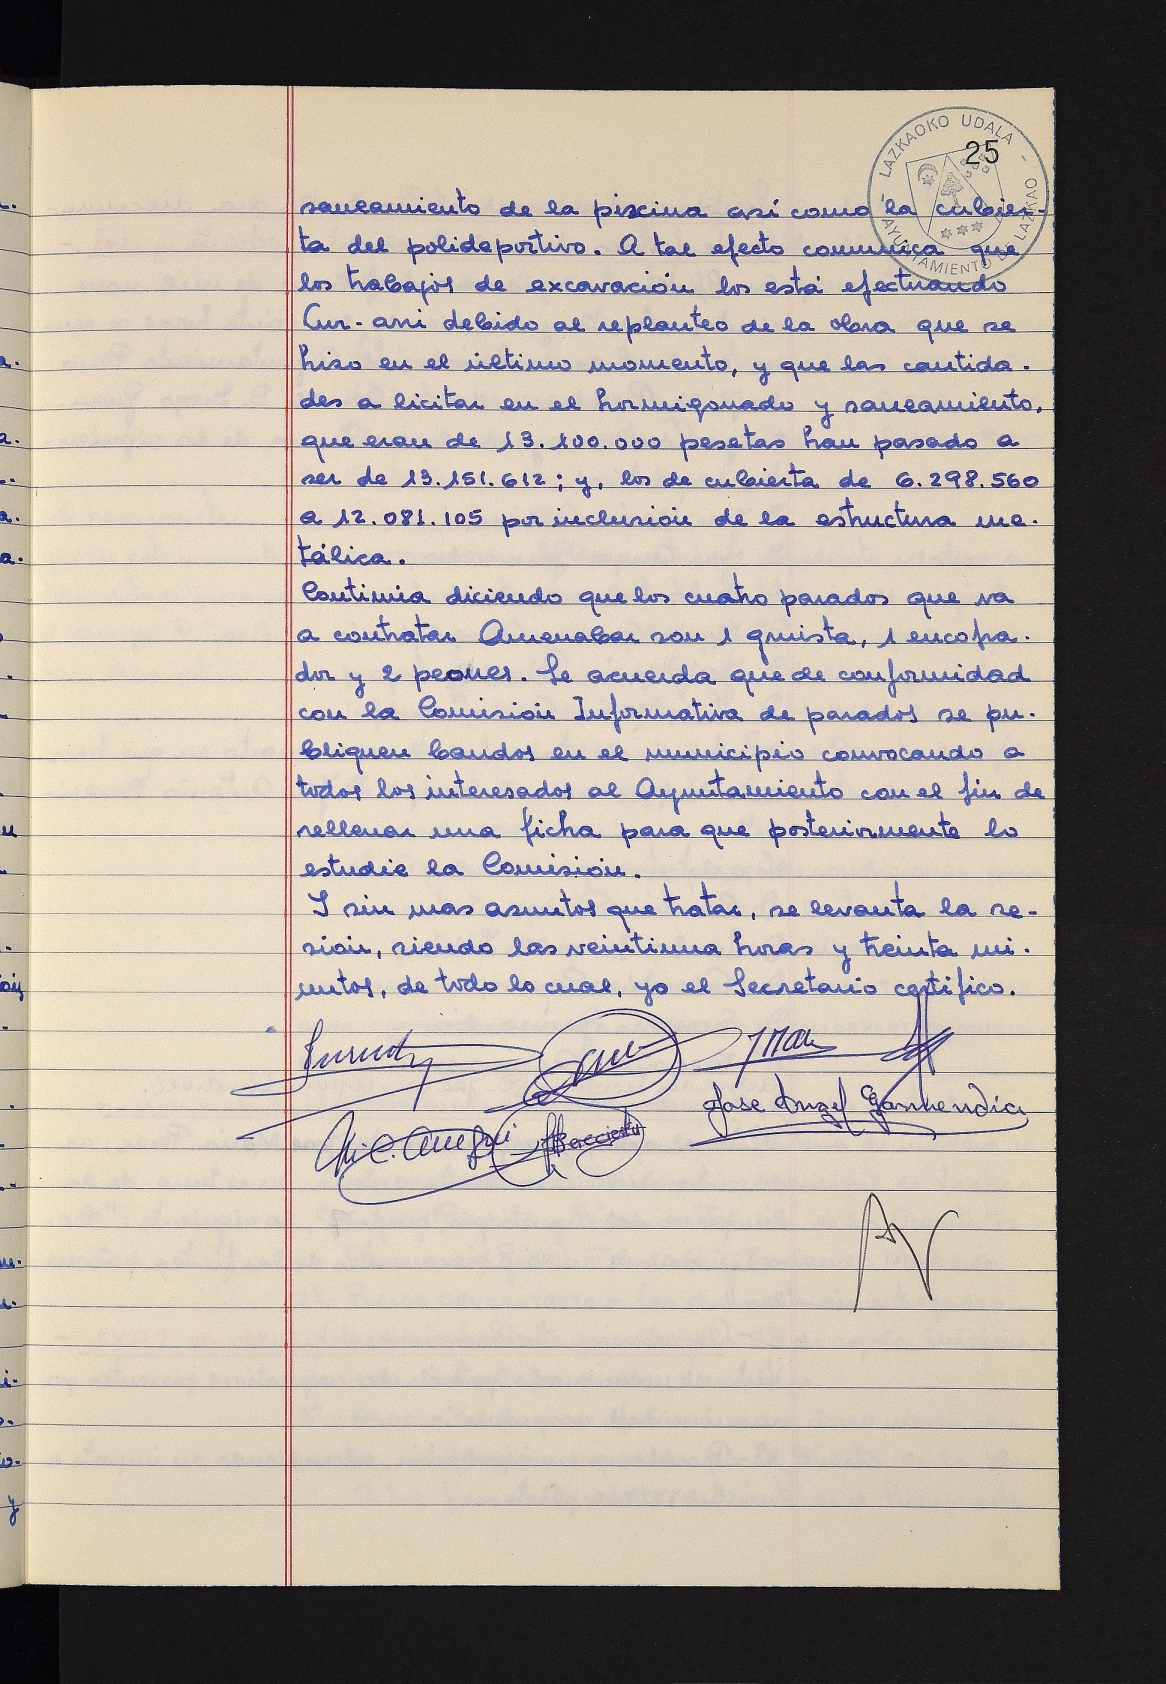 LAZKAOKO UDALA - AYUNTAMIENTO DE LAZKAO -
25
saneamiento de la piscina así como la cubier-
ta del polideportivo. A tal efecto comunica que
los trabajos de excavación los está efectuando
Cur-arri debido al replanteo de la obra que se
hizo en el último momento, y que las cantida-
des a licitar en el hormigonado y saneamiento,
que eran de 13.100.000 pesetas han pasado a
ser de 13.151.612; y, los de cubierta de 6.298.560
a 12.081.105 por inclusión de la estructura me-
tálica.
Continúa diciendo que los cuatro parados que va
a contratar Amenabar son 1 gruista, 1 encofra-
dor y 2 peones. Se acuerda que de conformidad
con la Comisión Informativa de parados se pu-
bliquen bandos en el municipio convocando a
todos los interesados al Ayuntamiento con el fin de
rellenar una ficha para que posteriormente lo
estudie la Comisión.
Y sin mas asuntos que tratar, se levanta la se-
sión, siendo las veintiuna horas y treinta mi-
nutos, de todo lo cual, yo el Secretario certifico.
Jose Angel Garmendia